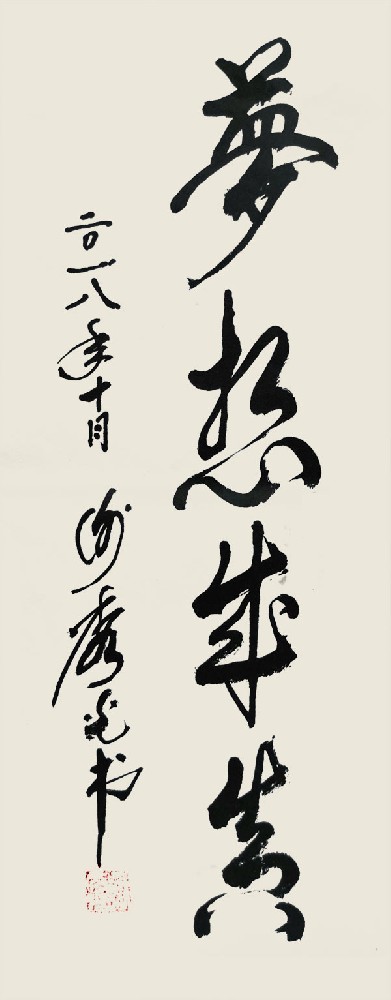 夢想成真
二〇一八年十月
书